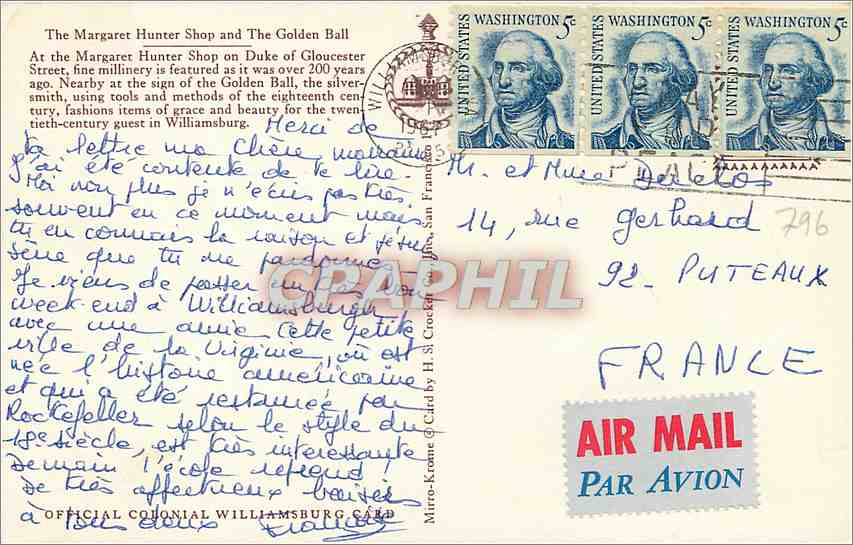 The Margaret Hunter Shop and The Golden Ball
At the Margaret Hunter Shop on Duke of Gloucester
Street, fine millinery is featured as it was over 200 years
ago. Nearby at the sign of the Golden Ball, the silver-
smith, using tools and methods of the eighteenth cen-
tury, fashions items of grace and beauty for the twen-
tieth-century guest in Williamsburg.
Merci de
ta lettre ma chère
j'ai été contente de te lire.
Moi non plus je n'écris pas très
souvent en ce moment mais
tu en connais la raison et je suis
sûre que tu me pardonnes
Je viens de passer un très bon
week-end à Williamsburgh
avec une amie Cette petite
ville de la Virginie, où est
née l'histoire américaine
et qui a été restaurée par
Rockefeller selon le style du
18e siècle, est très intéressante
Demain l'école reprend
De très affectueux baisers
à tous deux
OFFICIAL COLONIAL WILLIAMSBURG CARD
Mirro-Krome ® Card by H. S. Crocker Co., Inc., San Francisco
UNITED STATES WASHINGTON 5c
UNITED STATES WASHINGTON 5c
UNITED STATES WASHINGTON 5c
196
Mr. et Mme
14, rue Gerhard
92- PUTEAUX
FRANCE
796
AIR MAIL
PAR AVION
CPAPHIL